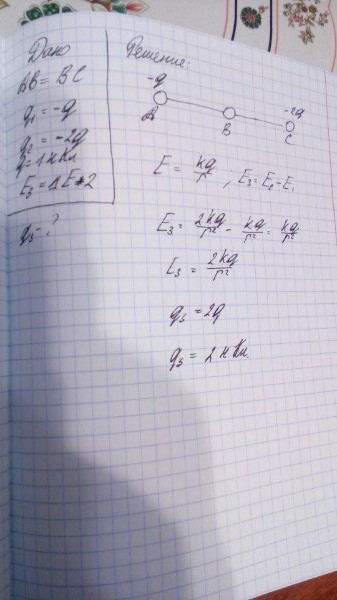 Дано
AB = BC
q₁ = -q
q₂ = -2q
q = 1 нКл
E₃ = ΔE*2
q₃ - ?
Решение:
-q
-2q
A
B
C
E = kq/r² , E₃ = E₂ - E₁
E₃ = 2kq/r² - kq/r² = kq/r²
E₃ = 2kq/r²
q₃ = 2q
q₃ = 2 нКл